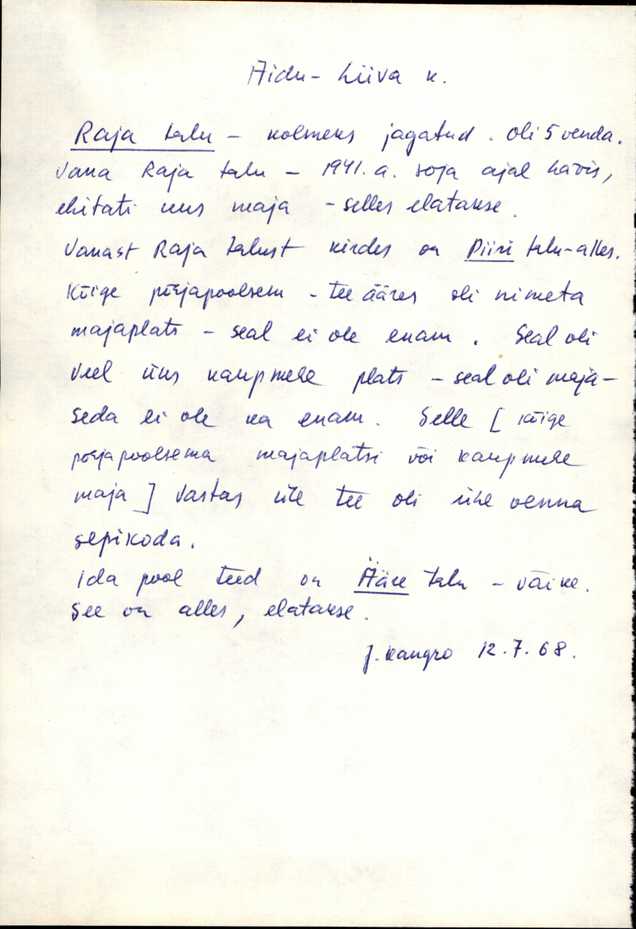 Aidu-Liiva k.
Raja talu – kolmeks jagatud. Oli 5 venda.
Vana Raja talu – 1941. a. sõja ajal hävis,
ehitati uus maja – selles elatakse.
Vanast Raja talust kirdes on Piiri talu – alles.
Kõige põhjapoolsem – tee ääres oli nimeta
majaplats – seal ei ole enam. Seal oli
veel üks kaupmehe plats – seal oli maja –
seda ei ole ka enam. Selle [kõige
põhjapoolsema majaplatsi või kaupmehe
maja] vastas üle tee oli ühe venna
sepikoda.
Ida pool teed on Ääre talu – väike.
See on alles, elatakse.
J. Kangro 12.7.68.